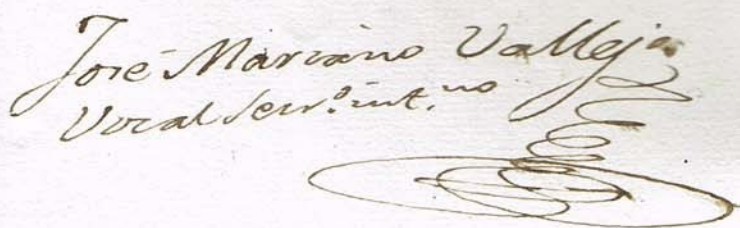 José Mariano Vallejo
Vocal Secr.º int.no